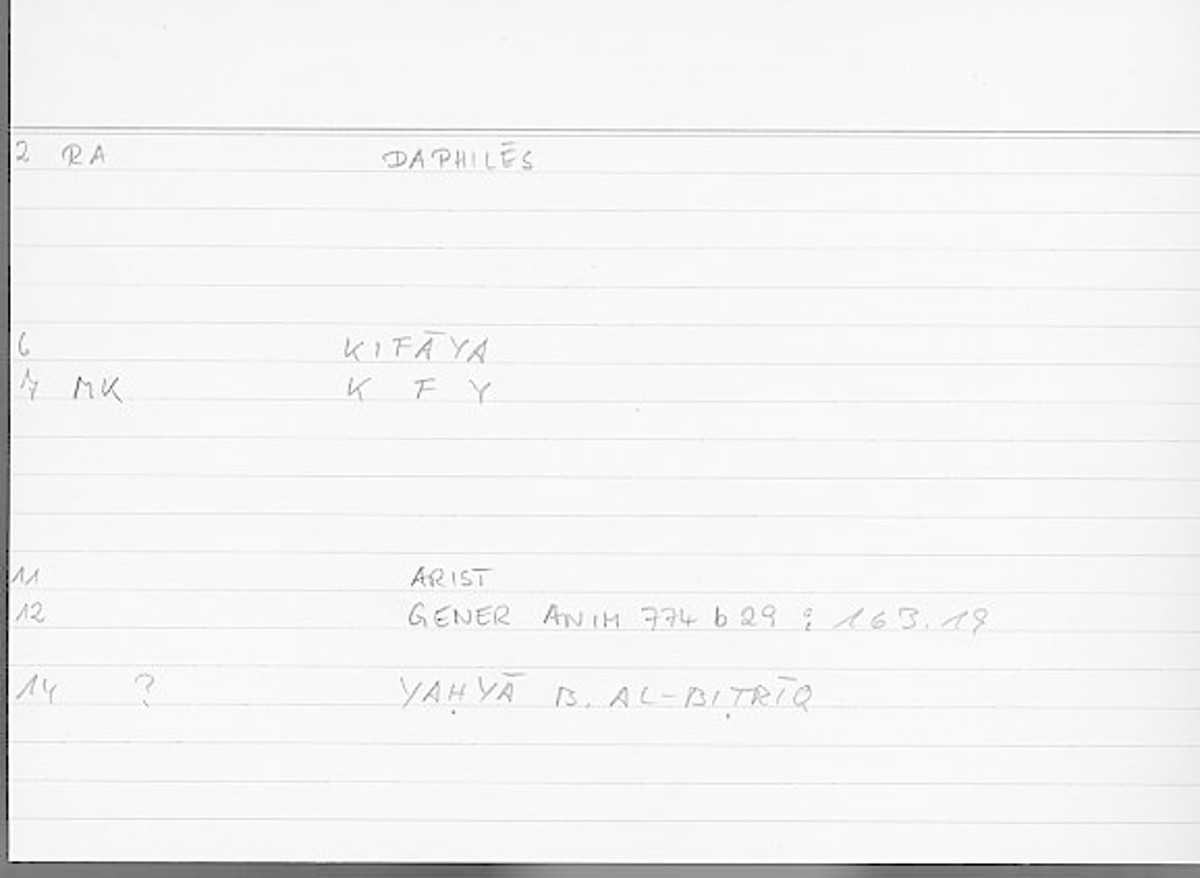 2 RA DAPHILĒS
6 KIFĀYA
7 MK K F Y
11 ARIST
12 GENER ANIM 774 b 29 : 163.19
14 ? YAḤYĀ B. AL-BIṬRĪQ